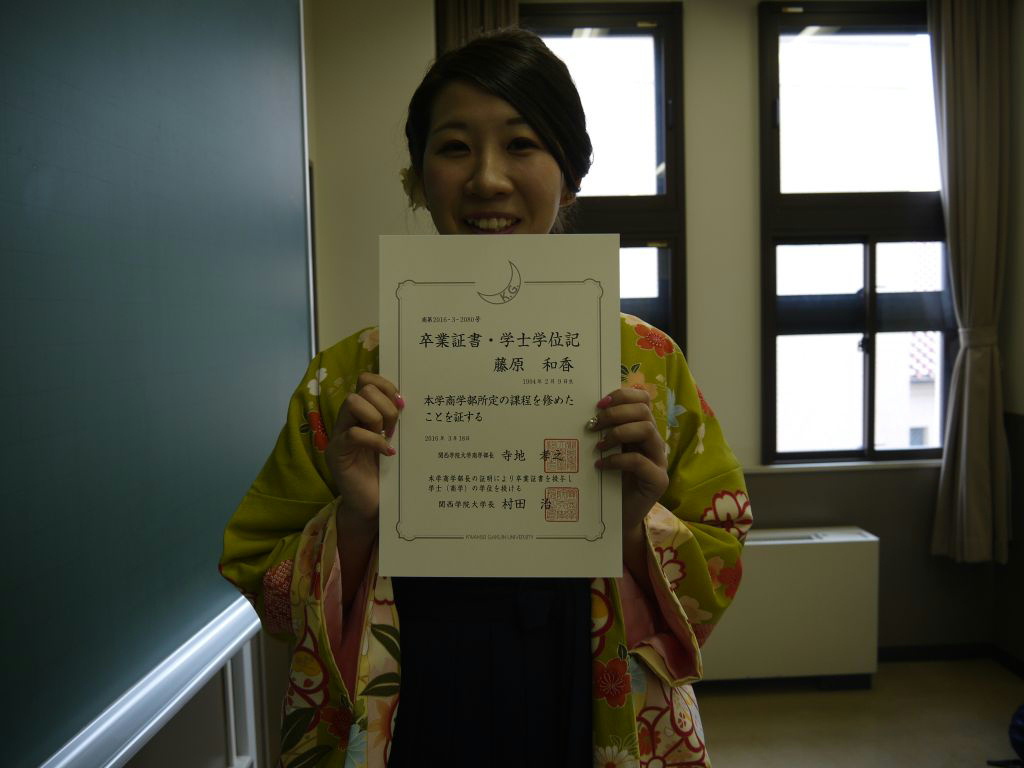 K.G.
商第2016-3-2080号
卒業証書・学士学位記
藤原 和香
1994年2月9日生
本学商学部所定の課程を修めた
ことを証する
2016年3月18日
関西学院大学商学部長 寺地 孝之
本学商学部長の証明により卒業証書を授与し
学士（商学）の学位を授ける
関西学院大学長 村田 治
KWANSEI GAKUIN UNIVERSITY